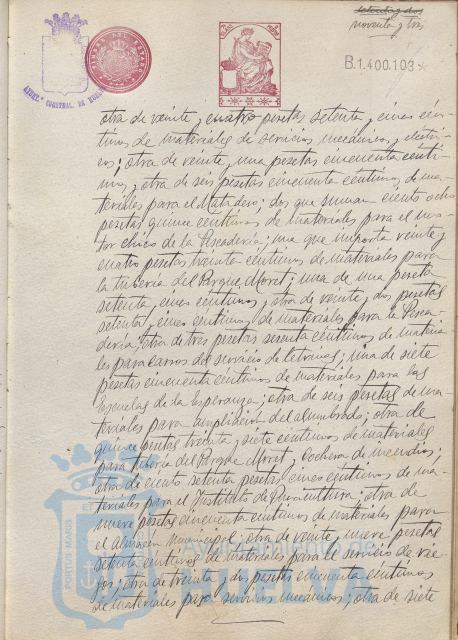 setenta y dos
noventa y tres
B.1.400.103
AYUNT. CONSTNAL. DE HUELVA
otra de veinte y cuatro pesetas setenta y cinco cén-
timos de materiales de servicios mecánicos y eléctri-
cos; otra de veinte y una pesetas cincuenta cénti-
mos y otra de seis pesetas cincuenta céntimos de ma-
teriales para el Matadero; dos que suman ciento ocho
pesetas quince céntimos de materiales para el mo-
tor chico de la Pescadería; una que importa veinte y
cuatro pesetas treinta céntimos de materiales para
la tubería del Parque Moret; una de una peseta
setenta y cinco céntimos y otra de veinte y dos pesetas
setenta y cinco céntimos de materiales para la Pesca-
dería; otra de tres pesetas sesenta céntimos de materia-
les para carros del servicio de letrinas; una de siete
pesetas cincuenta céntimos de materiales para las
Escuelas de la Esperanza; otra de seis pesetas de ma-
teriales para ampliación del alumbrado; otra de
quince pesetas treinta y siete céntimos de materiales
para tubería del Parque Moret y Cochera de incendios;
otra de ciento setenta pesetas cinco céntimos de ma-
teriales para el Instituto de Puericultura; otra de
nueve pesetas cincuenta céntimos de materiales para
el Almacén Municipal; otra de veinte y nueve pesetas
setenta céntimos de materiales para el servicio de rie-
gos; otra de treinta y dos pesetas cincuenta céntimos
de materiales para servicios mecánicos; otra de siete
PORTUS MARIS
Ayuntamiento de
HUELVA